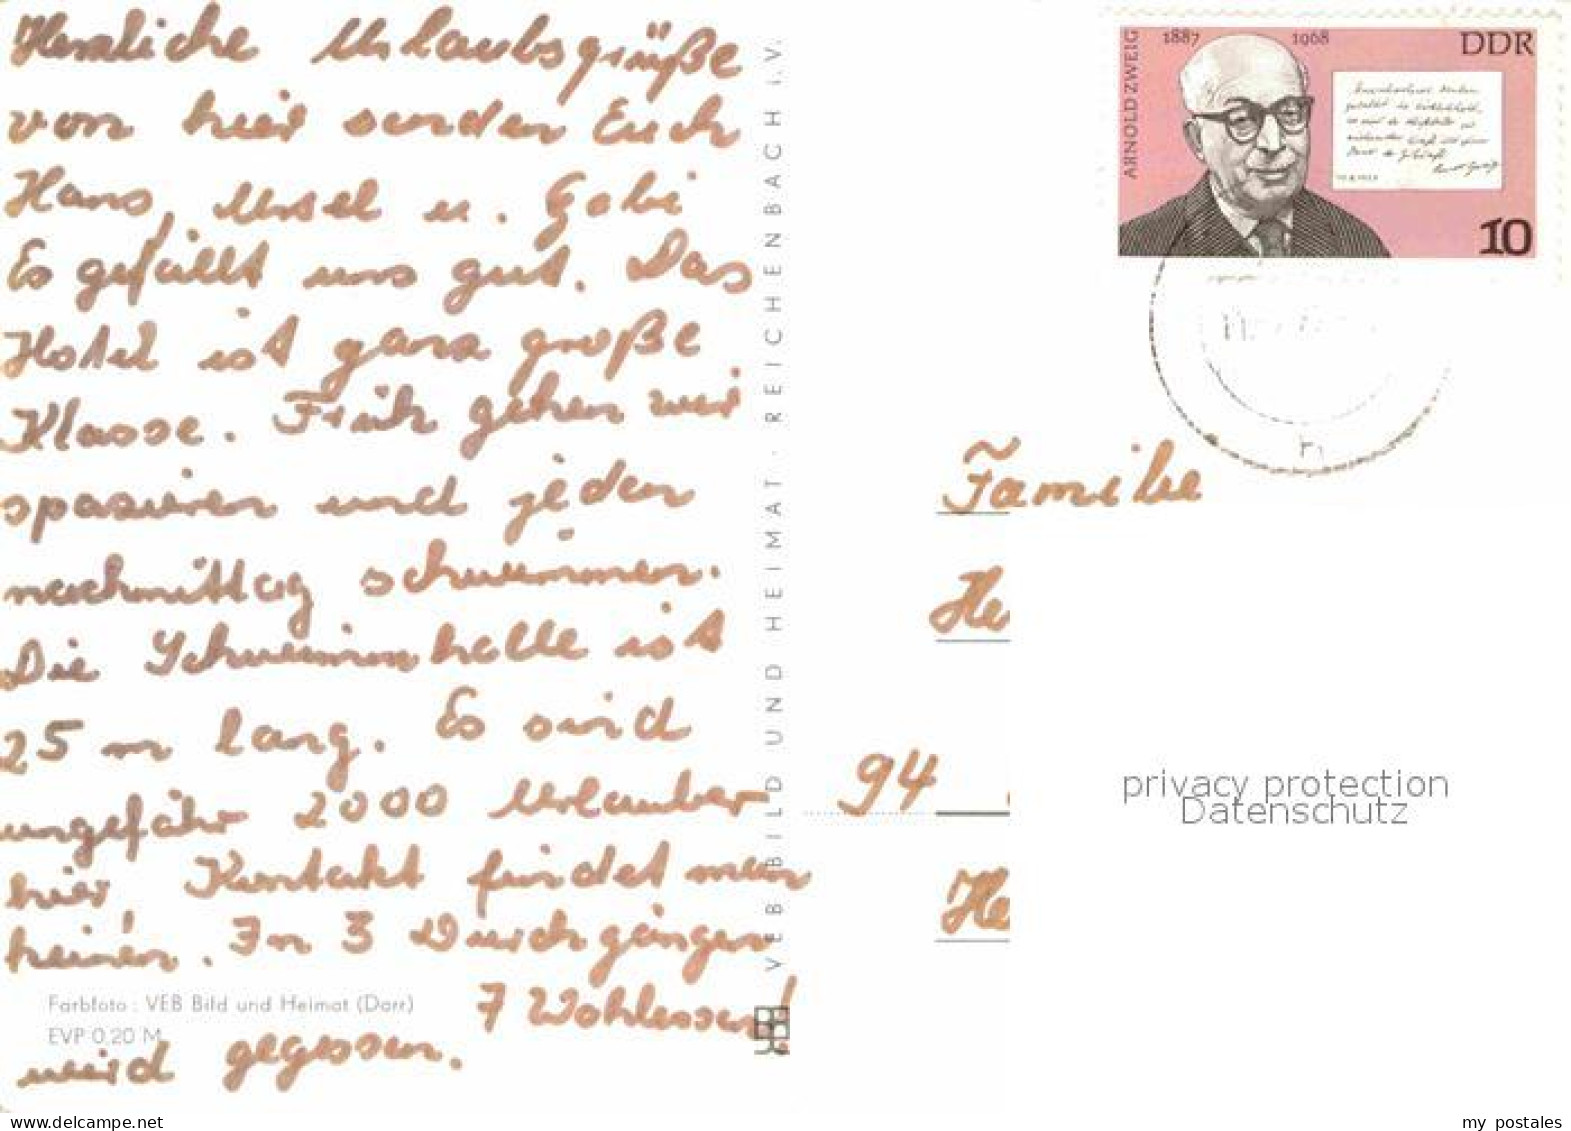 Herzliche Urlaubsgrüße
von hier senden Euch
Hans, Ursel u. Gabi
Es gefällt uns gut. Das
Hotel ist ganz große
Klasse. Früh gehen wir
spazieren und jeden
nachmittag schwimmen.
Die Schwimmhalle ist
25 m lang. Es sind
ungefähr 2000 Urlauber
hier, Kontakt findet man
keinen. In 3 Durchgängen
wird gegessen. 7 Wahlessen!
Farbfoto: VEB Bild und Heimat (Darr)
EVP 0,20 M
VEB BILD UND HEIMAT · REICHENBACH i.V.
ARNOLD ZWEIG
1887 1968
DDR
10
Familie
He
94
He
privacy protection
Datenschutz
my_postales